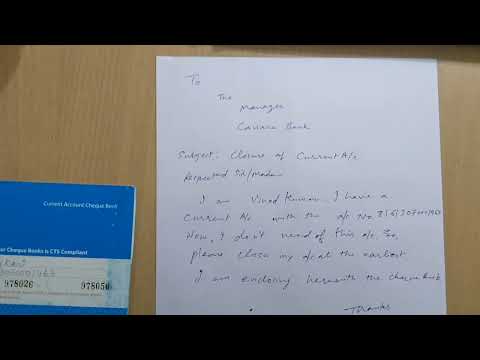 To
The
Manager
Canara Bank
Subject: Closure of Current A/c
Respected Sir/Madam
I am Vinod Kumar. I have a
Current A/c with the a/c No.
Now, I don't need of this a/c. So,
please close my a/c at the earliest
I am enclosing herewith the cheque book
Thanks
Current Account Cheque Book
Cheque Books is CTS Compliant
978026 978050